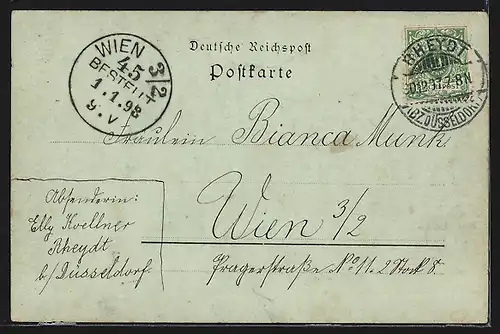 Deutsche Reichspost
Postkarte
WIEN 3/2
45
BESTELLT
1.1.98
9.V
RHEYDT
7-8N
(BZ DÜSSELDORF)
Fräulein Bianca Munk
Wien 3/2
Pragerstraße No 11. 2 Stock 8.
Absenderin:
Elly Koellner
Rheydt
b/Düsseldorf.